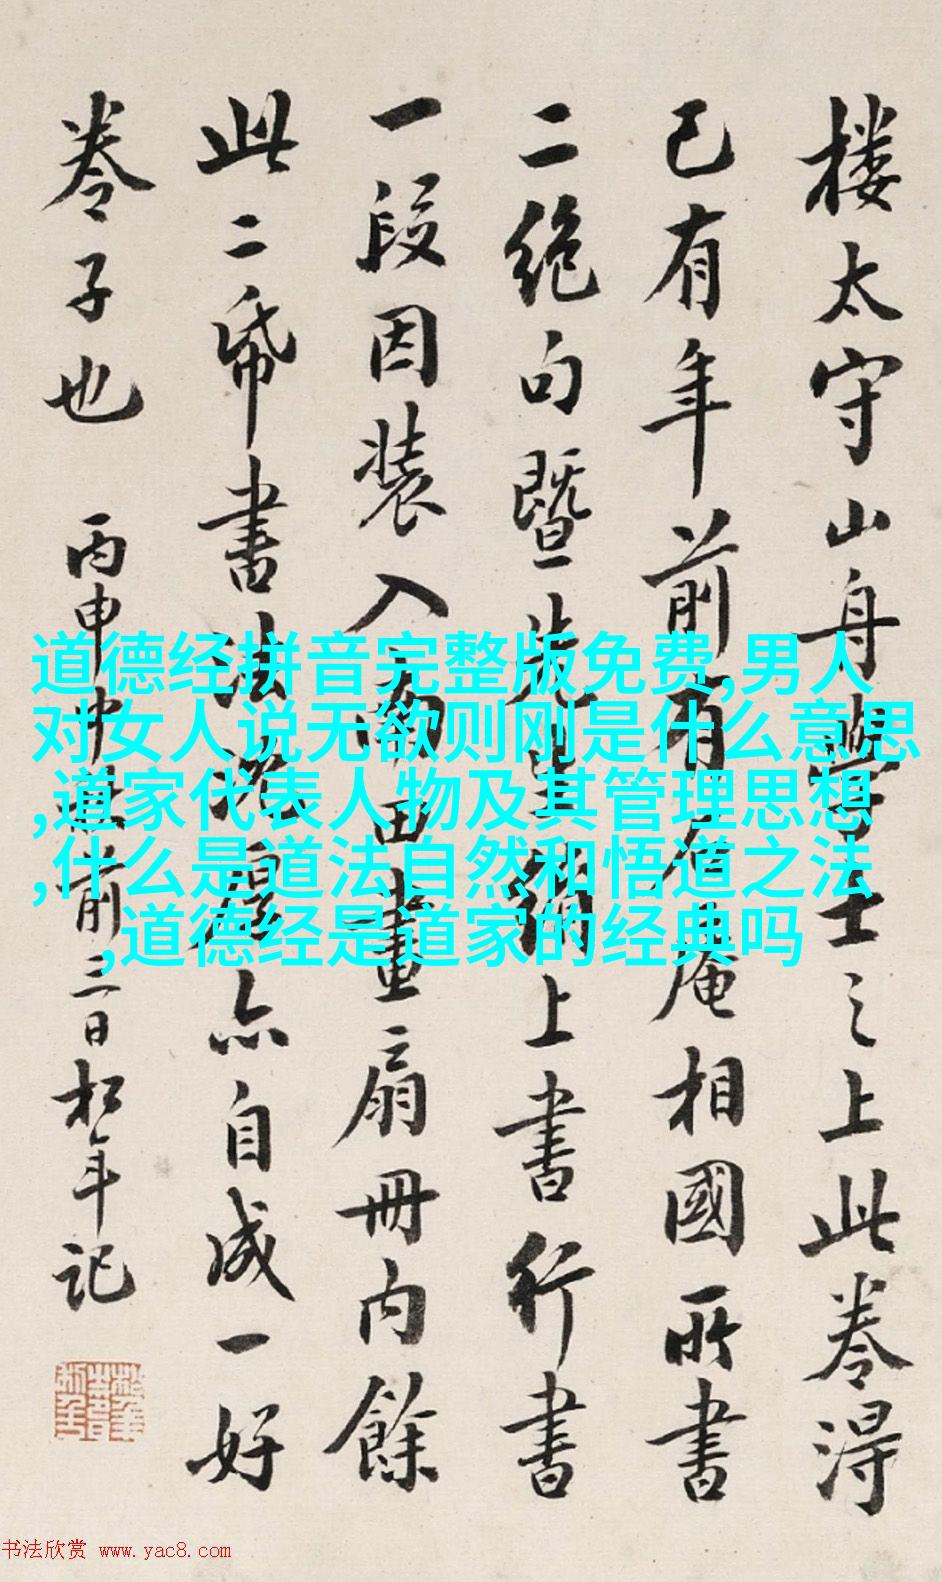 楼太守山舟學士之上此卷淂
已有年前有庵相國所書
二绝句暨先生上書行書
一段因装入田畫扇冊内餘
此二帋書法亦自成一好
卷子也
丙申中前三日松年記
道德经拼音完整版免费,男人
对女人说无欲则刚是什么意思
,道家代表人物及其管理思想
,什么是道法自然和悟道之法
,道德经是道家的经典吗
书法欣赏 www.yac8.com